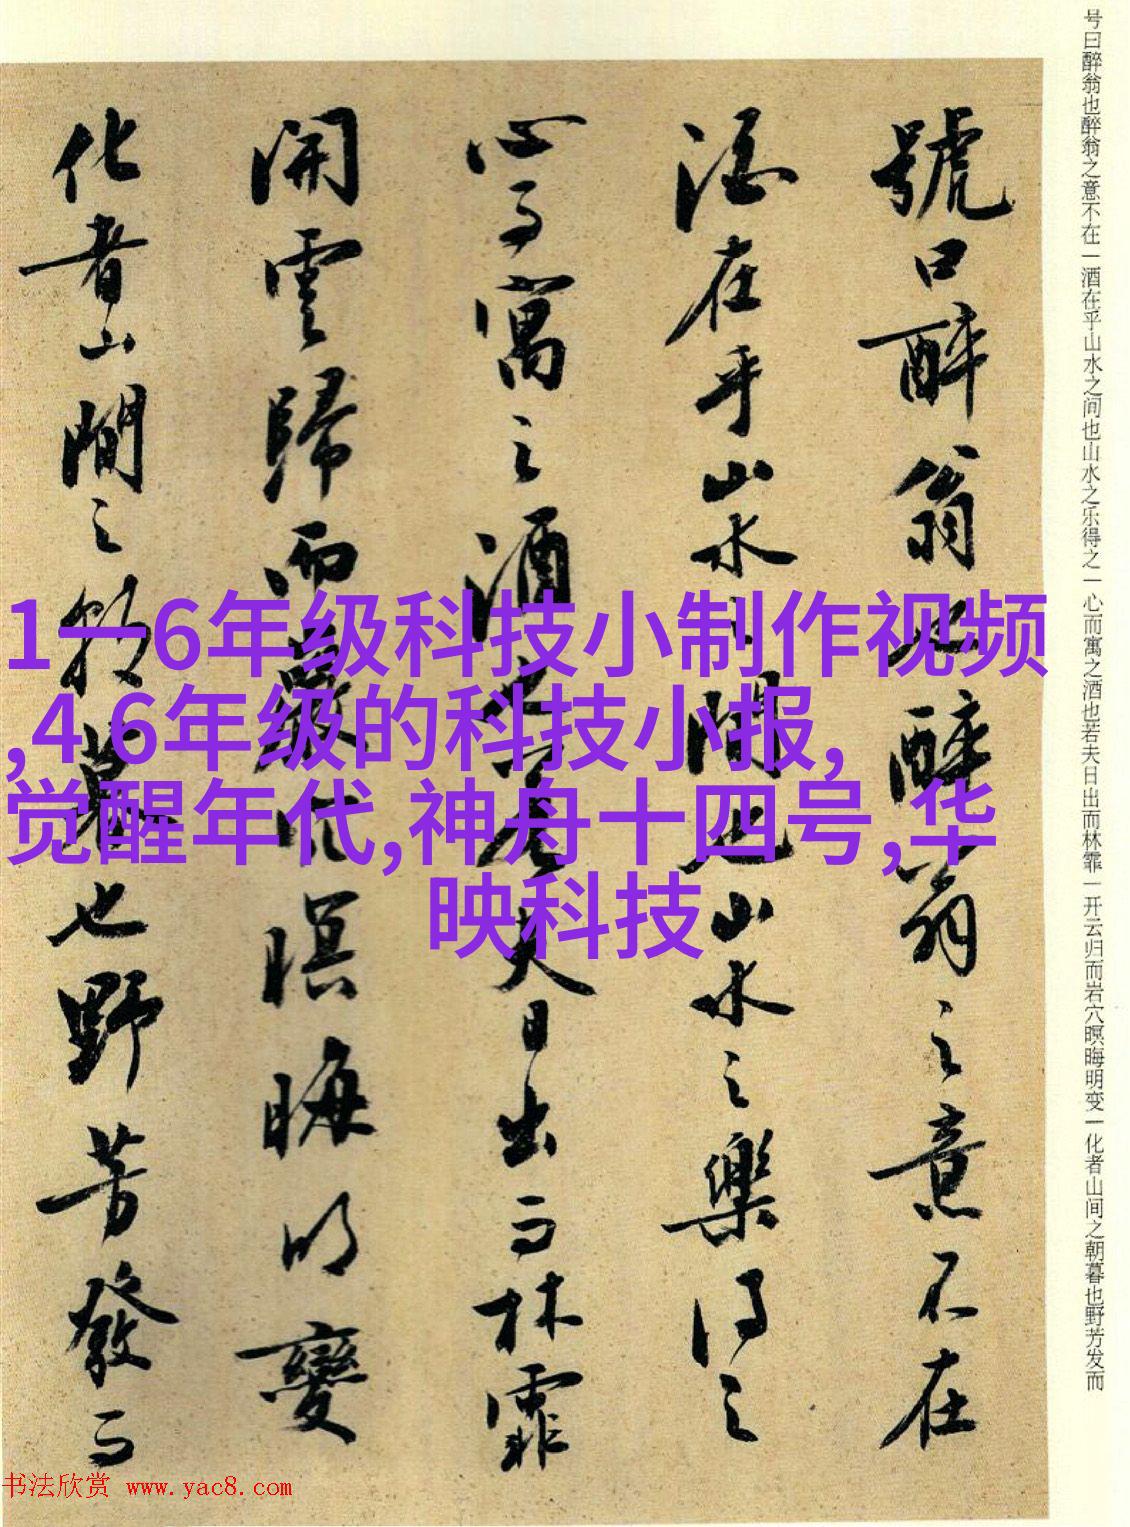 号曰醉翁也醉翁之意不在一酒在乎山水之间也山水之乐得之一心而寓之酒也若夫日出而林霏一开云归而岩穴暝晦明变一化者山间之朝暮也野芳发而
號曰醉翁也醉翁之意不在
酒在乎山水之間也山水之樂得之
心而寓之酒也若夫日出而林霏
開雲歸而巖穴暝晦明變
化者山間之朝暮也野芳發而
1一6年级科技小制作视频
,4 6年级的科技小报,
觉醒年代,神舟十四号,华
映科技
书法欣赏 www.yac8.com